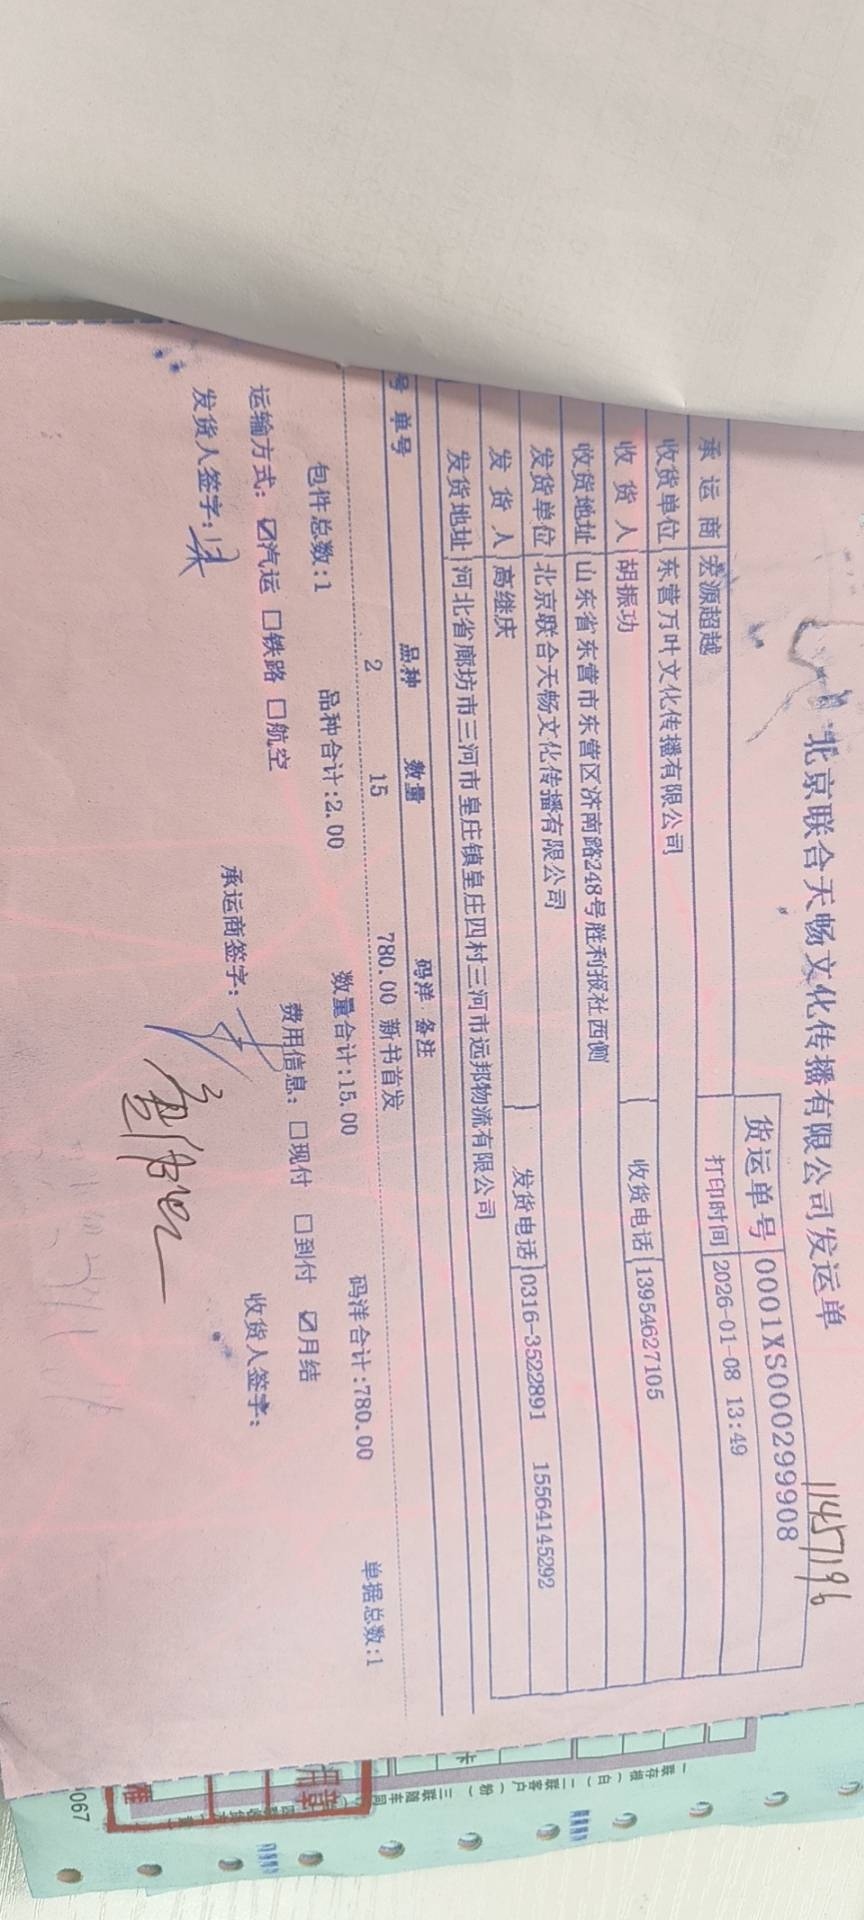 北京联合天畅文化传播有限公司发运单
11457196
货运单号 0001XS000299908
承运商 宏源超越 打印时间 2026-01-08 13:49
收货单位 东营万叶文化传播有限公司
收货人 胡振功 收货电话 13954627105
收货地址 山东省东营市东营区济南路248号胜利报社西侧
发货单位 北京联合天畅文化传播有限公司
发货人 高继庆 发货电话 0316-3522891 15564145292
发货地址 河北省廊坊市三河市皇庄镇皇庄四村三河市远邦物流有限公司
号 单号 品种 数量 码洋 备注
2 15 780.00 新书首发
包件总数:1 品种合计:2.00 数量合计:15.00 码洋合计:780.00 单据总数:1
运输方式: ☑汽运 □铁路 □航空 费用信息: □现付 □到付 ☑月结
发货人签字: 承运商签字: 收货人签字:
一联存根(白) 二联客户(粉) 三联随车同
卡
用章
067